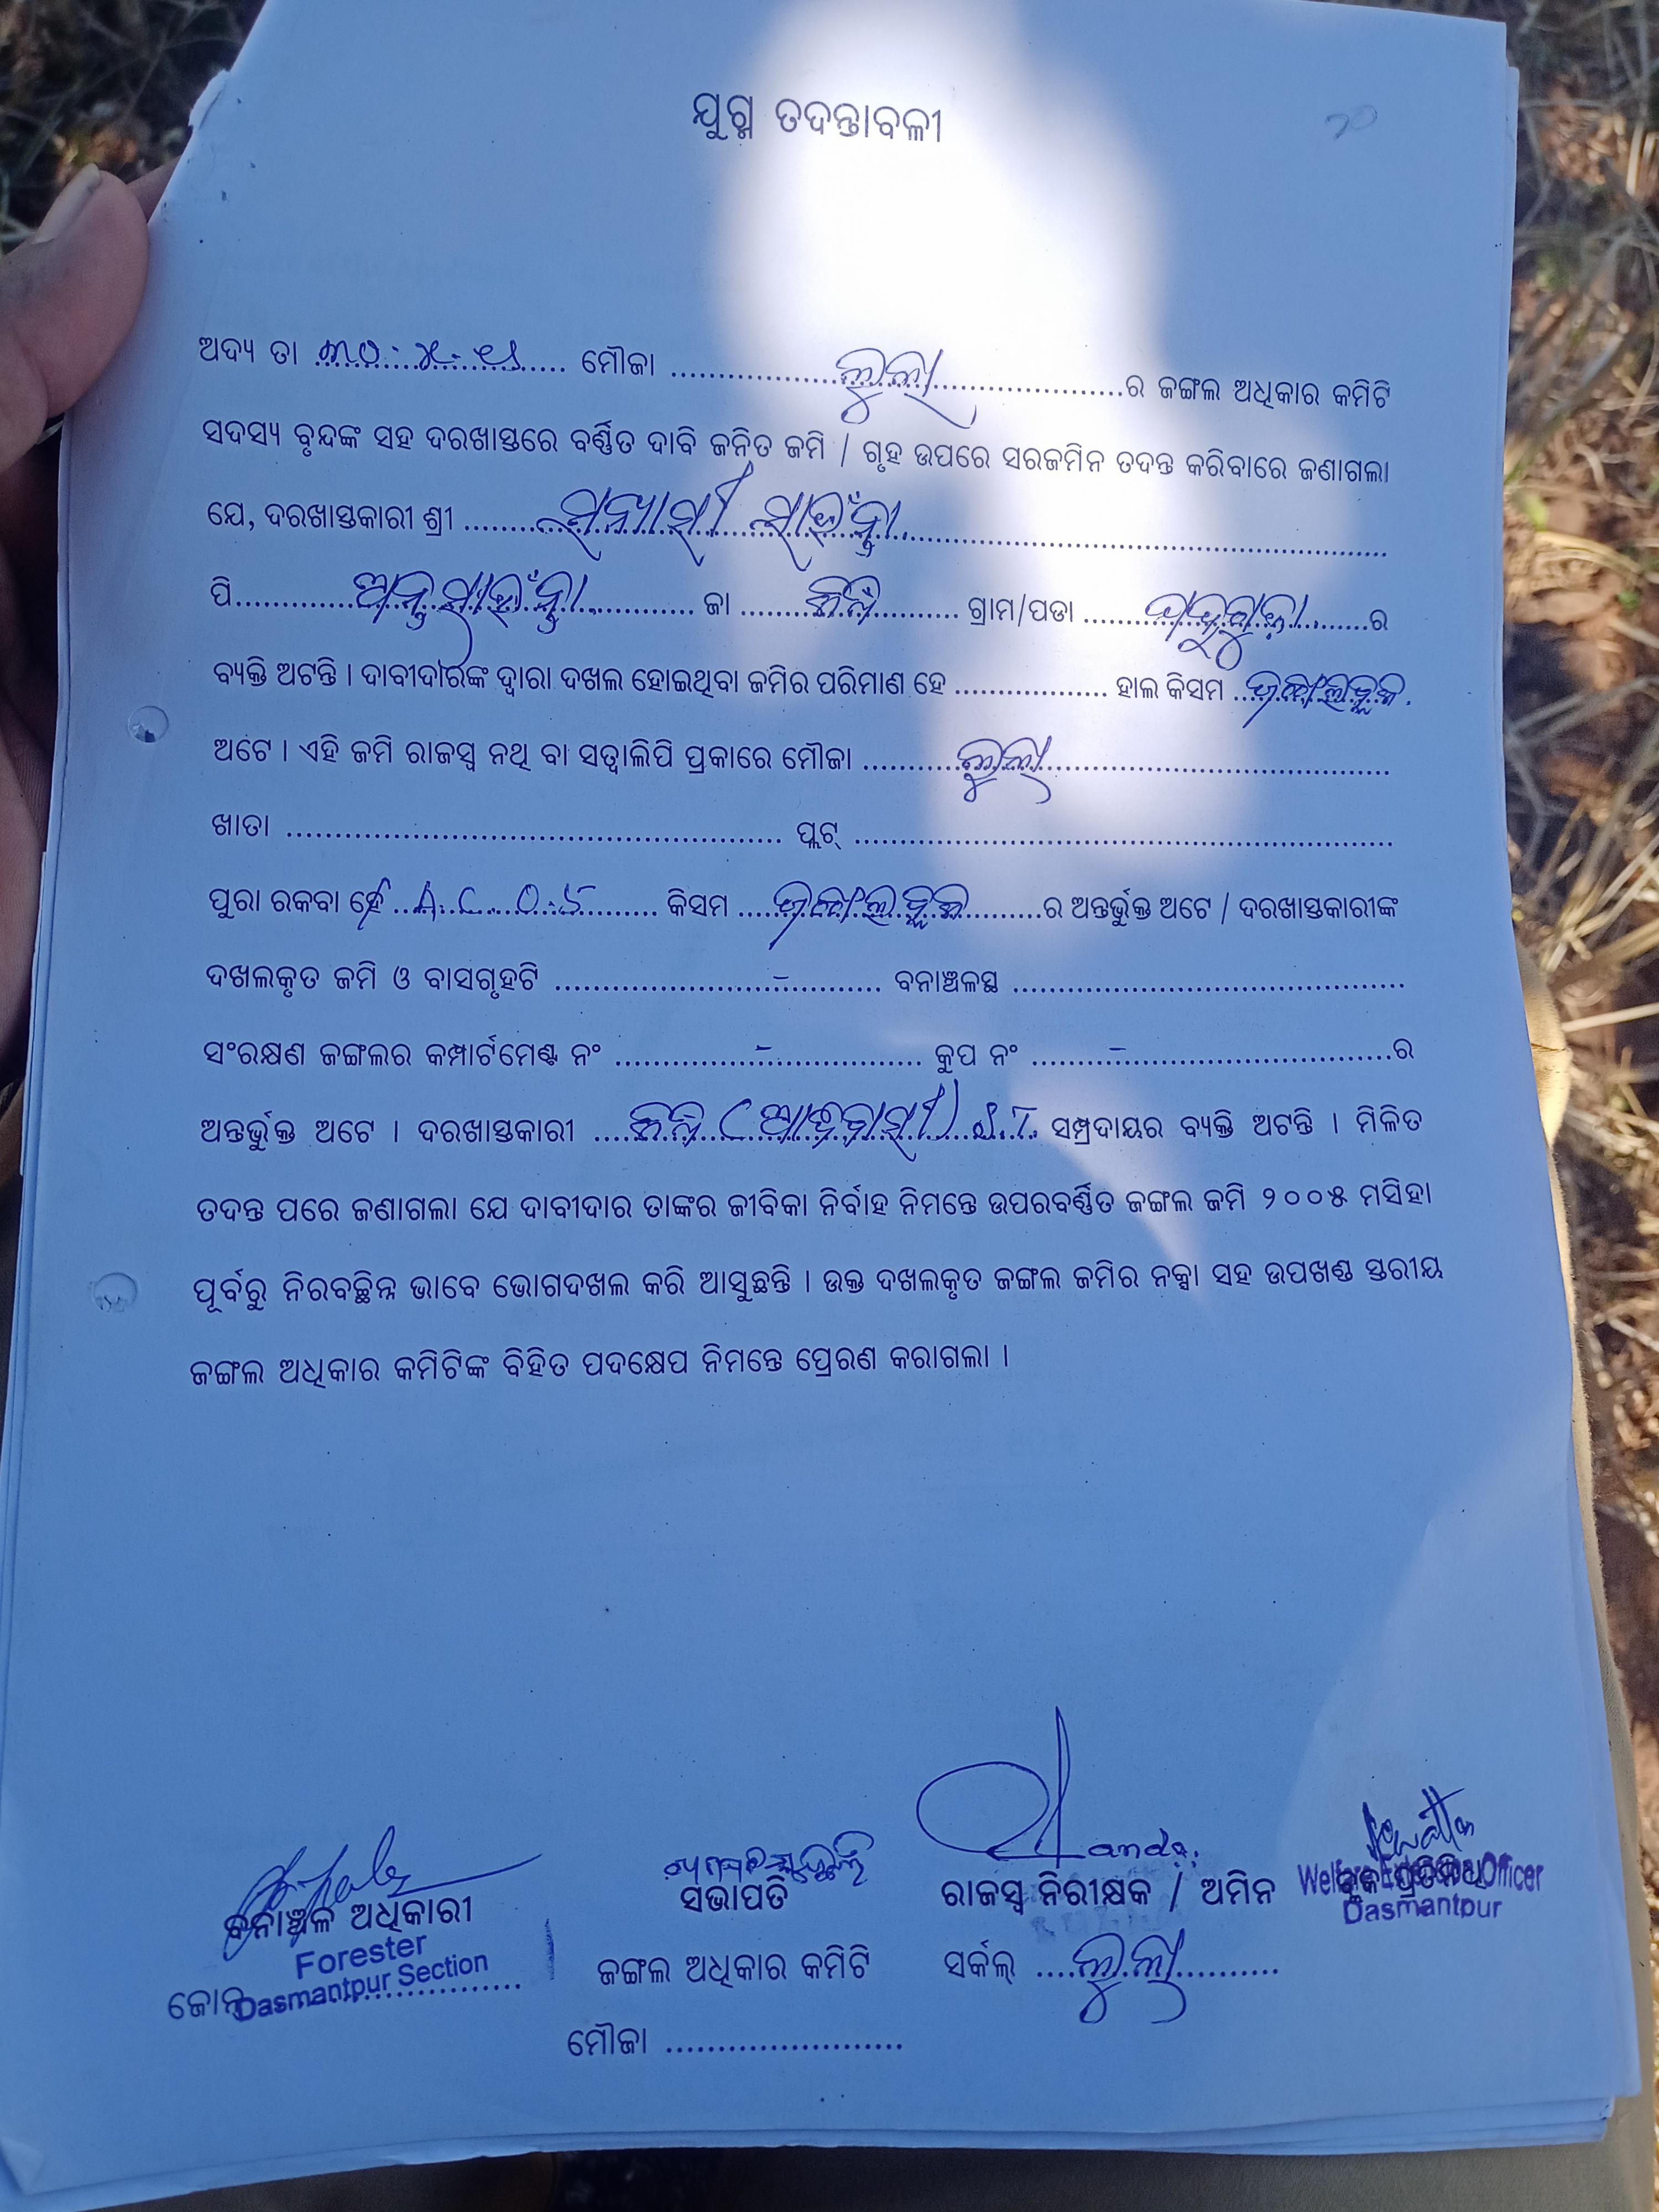 ଯୁଗ୍ମ ତଦନ୍ତାବଳୀ
ଅଦ୍ୟ ତା ............ ମୌଜା ............ର ଜଙ୍ଗଲ ଅଧିକାର କମିଟି
ସଦସ୍ୟ ବୃନ୍ଦଙ୍କ ସହ ଦରଖାସ୍ତରେ ବର୍ଣ୍ଣିତ ଦାବି ଜନିତ ଜମି / ଗୃହ ଉପରେ ସରଜମିନ ତଦନ୍ତ କରିବାରେ ଜଣାଗଲା
ଯେ, ଦରଖାସ୍ତକାରୀ ଶ୍ରୀ ............
ପି............ ଜା ............ ଗ୍ରାମ/ପଡା ............ର
ବ୍ୟକ୍ତି ଅଟନ୍ତି । ଦାବୀଦାରଙ୍କ ଦ୍ୱାରା ଦଖଲ ହୋଇଥିବା ଜମିର ପରିମାଣ ହେ ............ ହାଲ କିସମ ............
ଅଟେ । ଏହି ଜମି ରାଜସ୍ୱ ନଥି ବା ସତ୍ୱାଲିପି ପ୍ରକାରେ ମୌଜା ............
ଖାତା ............ ପ୍ଲଟ୍ ............
ପୁରା ରକବା ହେଁ A.C. 0.5 କିସମ ............ର ଅନ୍ତର୍ଭୁକ୍ତ ଅଟେ / ଦରଖାସ୍ତକାରୀଙ୍କ
ଦଖଲକୃତ ଜମି ଓ ବାସଗୃହଟି ......-...... ବନାଞ୍ଚଳସ୍ଥ ............
ସଂରକ୍ଷଣ ଜଙ୍ଗଲର କମ୍ପାର୍ଟମେଣ୍ଟ ନଂ ......-...... କୁପ ନଂ ......-......ର
ଅନ୍ତର୍ଭୁକ୍ତ ଅଟେ । ଦରଖାସ୍ତକାରୀ (ଆଦିବାସୀ) S.T. ସମ୍ପ୍ରଦାୟର ବ୍ୟକ୍ତି ଅଟନ୍ତି । ମିଳିତ
ତଦନ୍ତ ପରେ ଜଣାଗଲା ଯେ ଦାବୀଦାର ତାଙ୍କର ଜୀବିକା ନିର୍ବାହ ନିମନ୍ତେ ଉପରବର୍ଣ୍ଣିତ ଜଙ୍ଗଲ ଜମି ୨୦୦୫ ମସିହା
ପୂର୍ବରୁ ନିରବଚ୍ଛିନ୍ନ ଭାବେ ଭୋଗଦଖଲ କରି ଆସୁଛନ୍ତି । ଉକ୍ତ ଦଖଲକୃତ ଜଙ୍ଗଲ ଜମିର ନକ୍ସା ସହ ଉପଖଣ୍ଡ ସ୍ତରୀୟ
ଜଙ୍ଗଲ ଅଧିକାର କମିଟିଙ୍କ ବିହିତ ପଦକ୍ଷେପ ନିମନ୍ତେ ପ୍ରେରଣ କରାଗଲା ।
ବନାଞ୍ଚଳ ଅଧିକାରୀ
Forester
Dasmantpur Section
ଜୋନ୍
ସଭାପତି
ଜଙ୍ଗଲ ଅଧିକାର କମିଟି
ମୌଜା ............
ରାଜସ୍ୱ ନିରୀକ୍ଷକ / ଅମିନ
ସର୍କଲ୍ ............
ବ୍ଲକ ପ୍ରତିନିଧି
Welfare Extension Officer
Dasmantpur